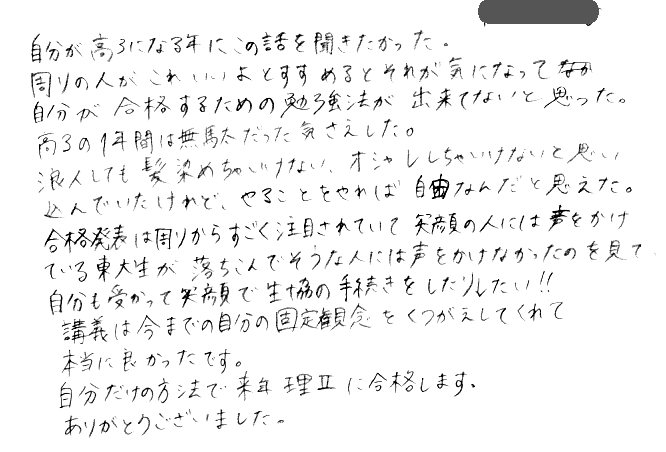 自分が高3になる年にこの話を聞きたかった。
周りの人がこれいいよとすすめるとそれが気になって
自分が合格するための勉強法が出来てないと思った。
高3の1年間は無駄だった気さえした。
浪人しても髪染めちゃいけない、オシャレしちゃいけないと思い
込んでいたけれど、やることをやれば自由なんだと思えた。
合格発表は周りからすごく注目されていて笑顔の人には声をかけ
ている東大生が落ちこんでそうな人には声をかけなかったのを見て
自分も受かって笑顔で生協の手続きをしたりしたい!!
講義は今までの自分の固定観念をくつがえしてくれて
本当に良かったです。
自分だけの方法で来年理Ⅱに合格します。
ありがとうございました。